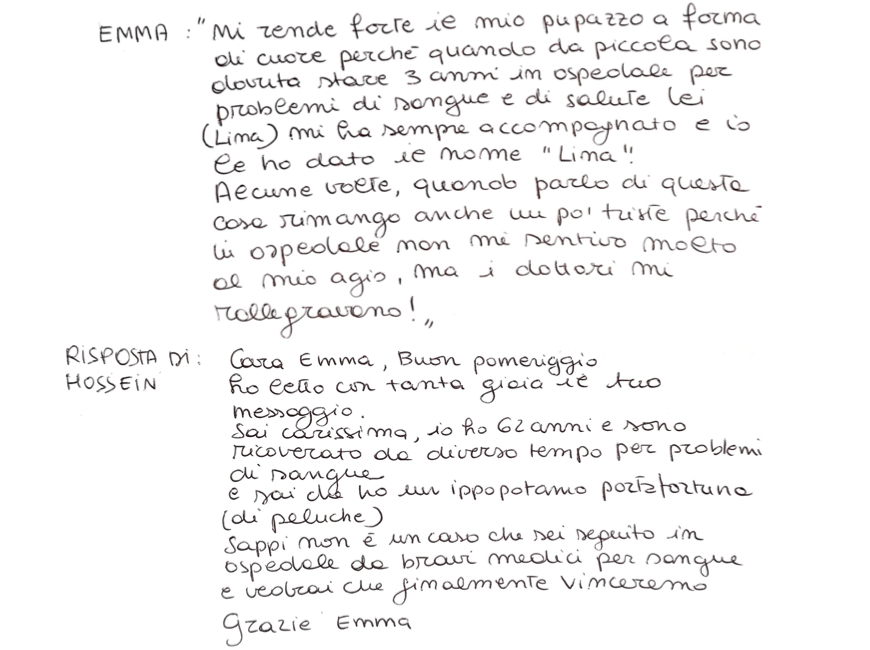 EMMA : "Mi rende forte il mio pupazzo a forma
di cuore perché quando da piccola sono
dovuta stare 3 anni in ospedale per
problemi di sangue e di salute lei
(Lima) mi ha sempre accompagnato e io
le ho dato il nome "Lima"!
Alcune volte, quando parlo di queste
cose rimango anche un po' triste perché
in ospedale non mi sentivo molto
al mio agio, ma i dottori mi
rallegravano!"
RISPOSTA DI : Cara Emma, Buon pomeriggio
HOSSEIN ho letto con tanta gioia il tuo
messaggio.
Sai carissima, io ho 62 anni e sono
ricoverato da diverso tempo per problemi
di sangue
e sai che ho un ippopotamo portafortuna
(di peluche)
Sappi non è un caso che sei seguito in
ospedale da bravi medici per sangue
e vedrai che finalmente vinceremo
Grazie Emma